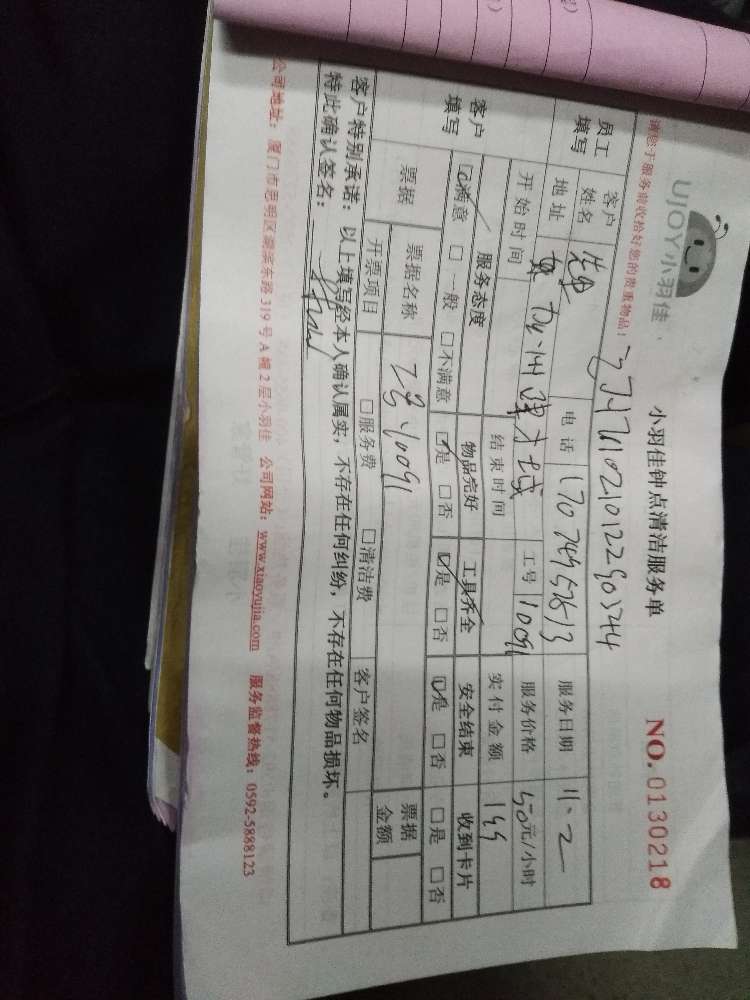 UJOY小羽佳
小羽佳钟点清洁服务单
NO. 0130218
请您于服务前收拾好您的贵重物品!
员工填写
客户姓名
电话 17074957613
服务日期 11.2
地址
工号 10091
服务价格 50元/小时
开始时间
结束时间
实付金额 149
客户填写
服务态度 物品完好 工具齐全 安全结束 收到卡片
☑满意 □一般 □不满意 ☑是 □否 ☑是 □否 ☑是 □否 □是 □否
票据
票据名称
票据金额
开票项目 □服务费 □清洁费 客户签名
客户特别承诺:以上填写经本人确认属实,不存在任何纠纷,不存在任何物品损坏。
特此确认签名:
公司地址:厦门市思明区湖滨东路319号A幢2层小羽佳 公司网站:www.xiaoyujia.com 服务监督热线:0592-5888123